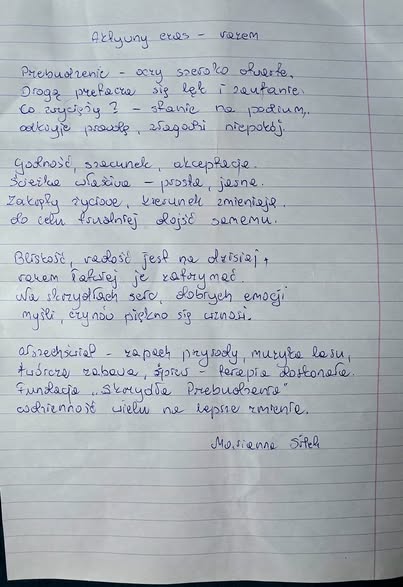 Aktywny czas - razem
Przebudzenie - oczy szeroko otwarte.
Drogą przetacza się lęk i zaufanie.
Co zwycięży? - stanie na podium,
odkryje prawdę, złagodzi niepokój.
Godność, szacunek, akceptacja.
Ścieżka właściwa - prosta, jasna.
Zakręty życiowe, kierunek zmieniają,
do celu trudniej dojść samemu.
Bliskość, radość jest na dzisiaj,
razem łatwiej je zatrzymać.
Na skrzydłach serc, dobrych emocji
myśli, czynów piękno się wznosi.
Wszechświat - zapach przyrody, muzyka lasu,
twórcza zabawa, śpiew - terapia doskonała.
Fundacja „Skrzydła Przebudzenia"
codzienność wielu na lepsze zmienia.
Marianna